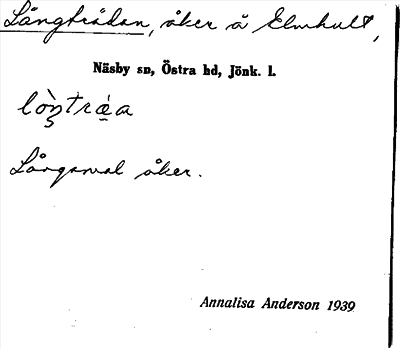 Långträdan, åker å Elmhult,
Näsby sn, Östra hd, Jönk. l.
Långsmal åker.
Annalisa Anderson 1939